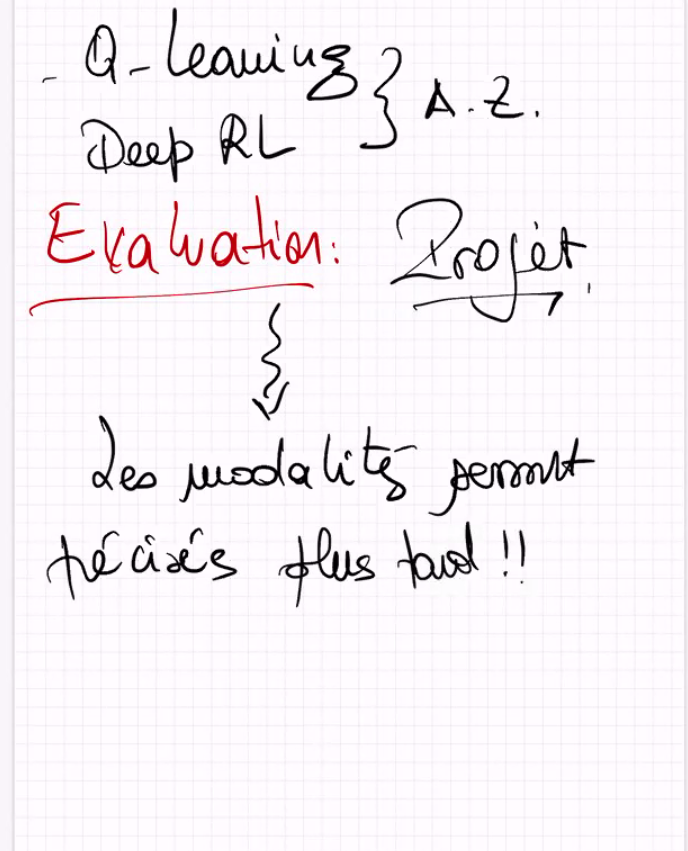 - Q-Learning } A.Z.
Deep RL
Evaluation: Projet.
Les modalités seront
précisés plus tard !!